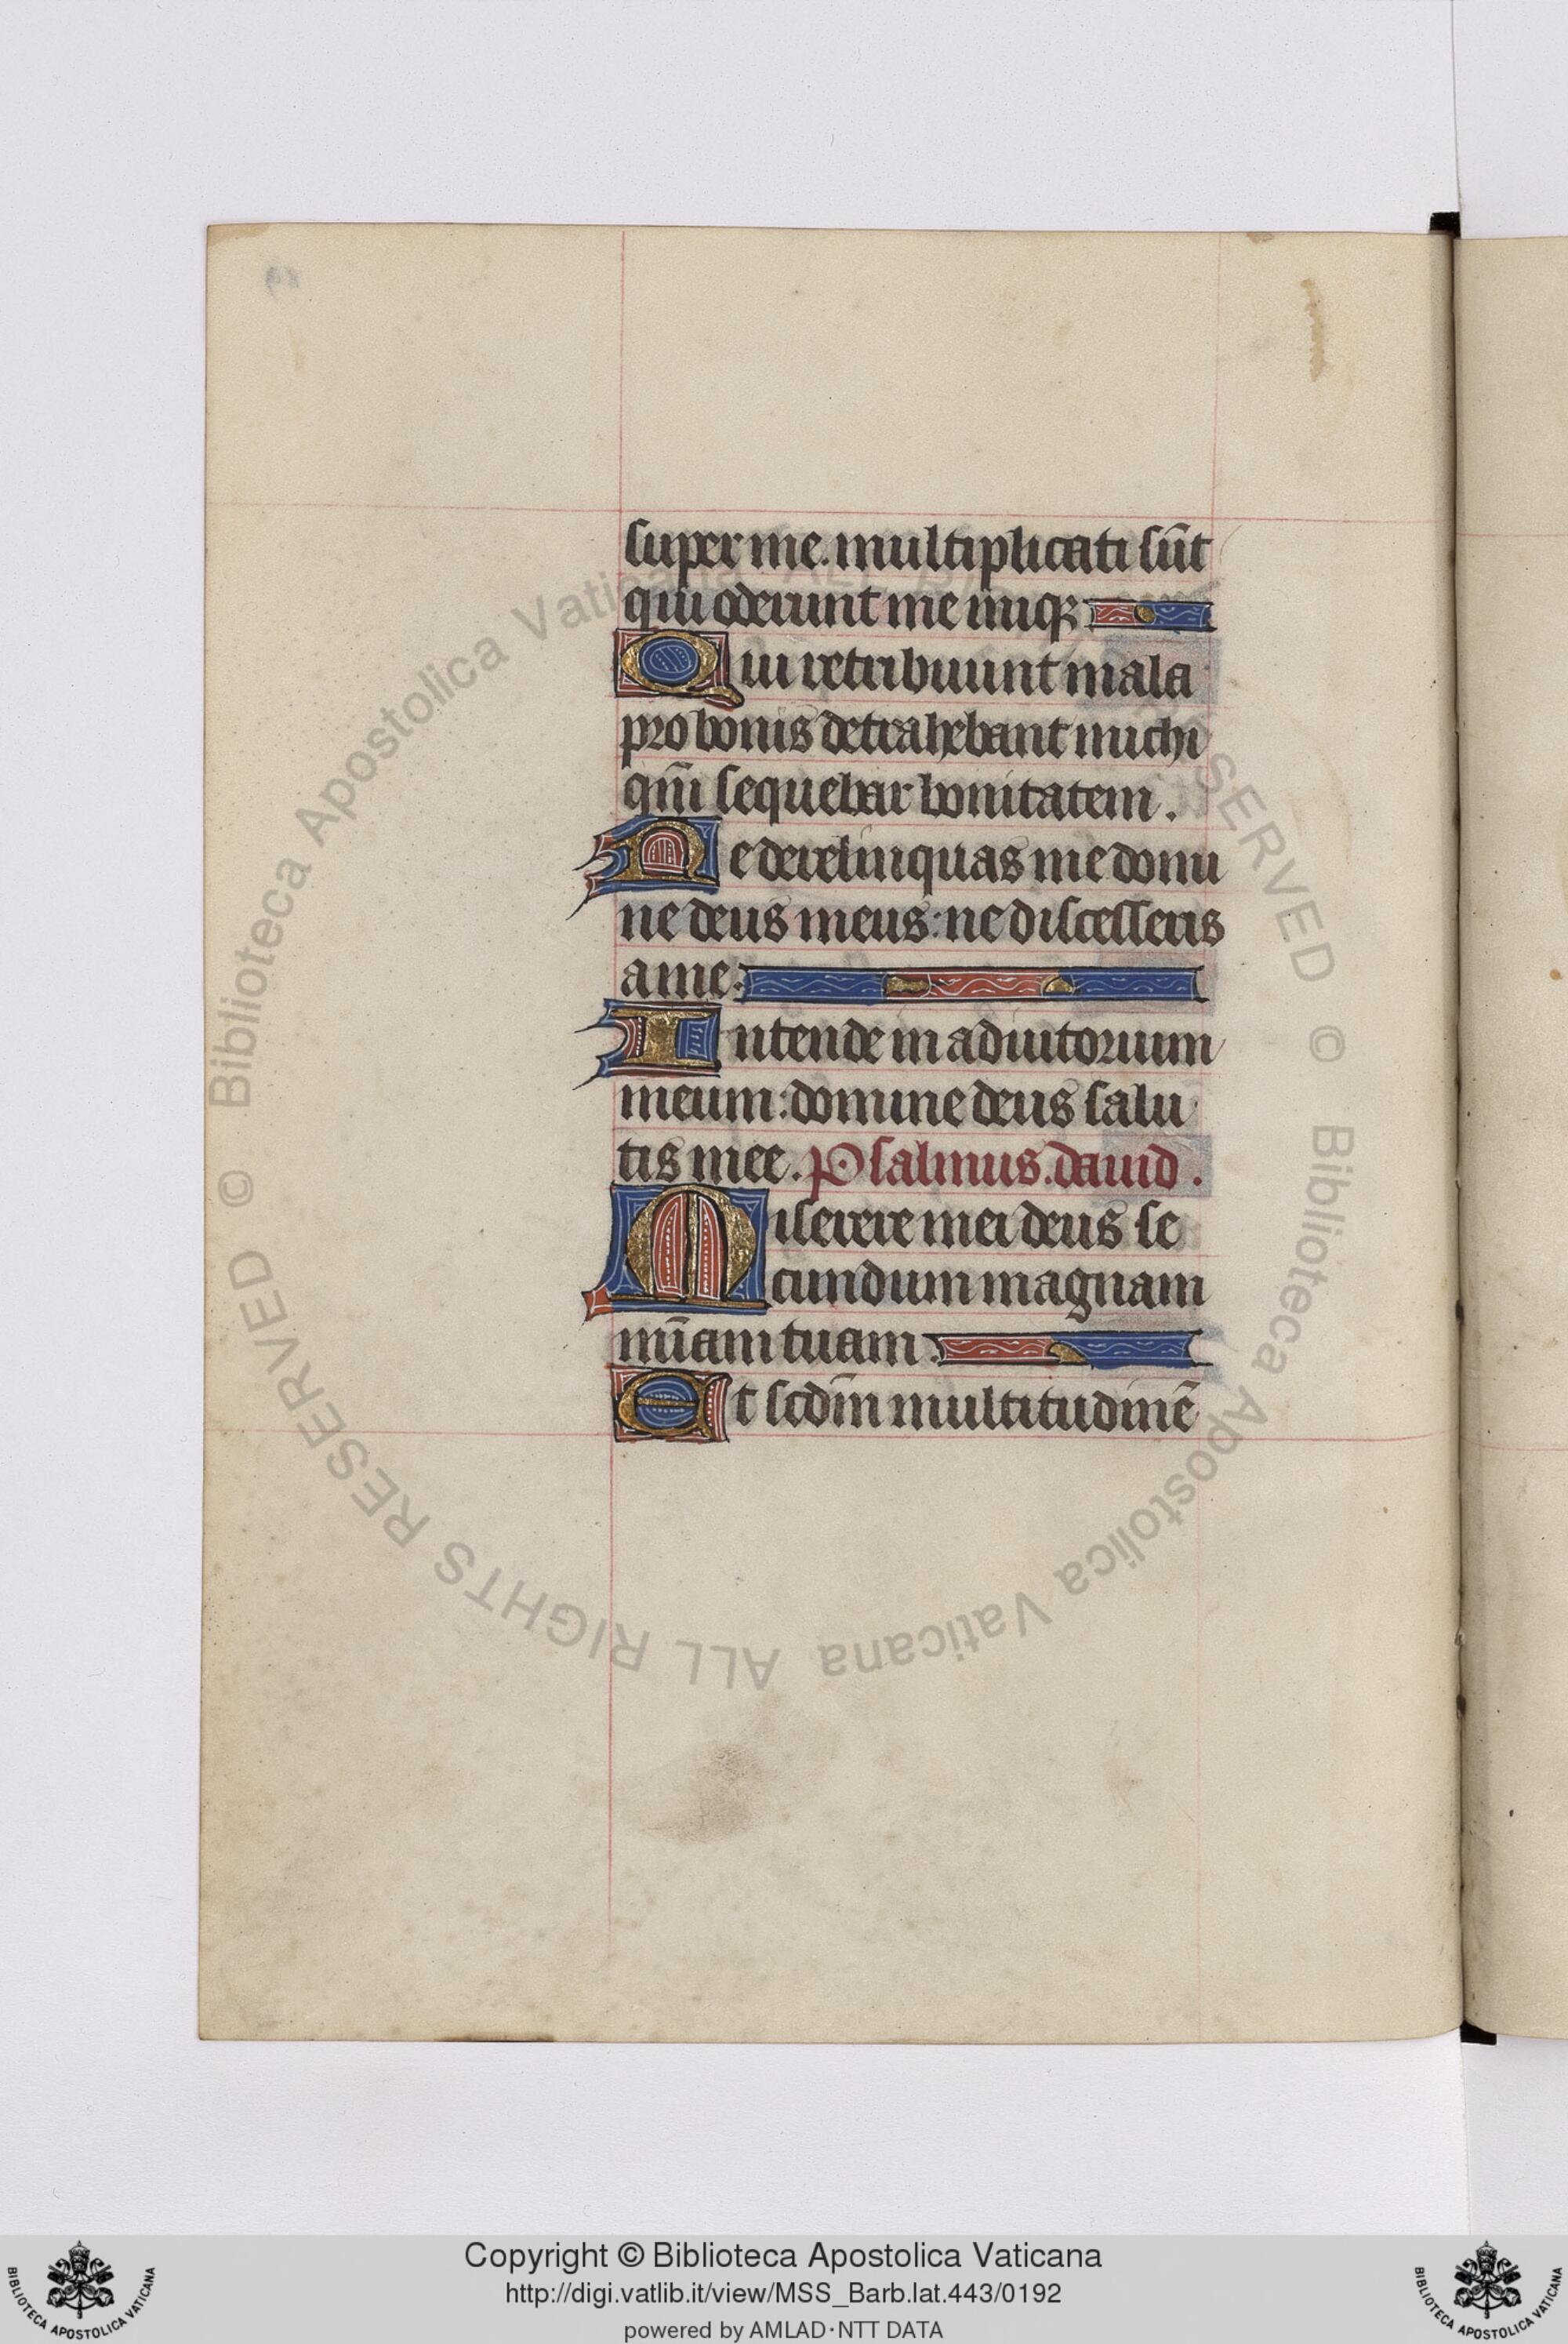 super me. multiplicati sūt
qui oderunt me iniqꝫ
Qui retribuunt mala
pro bonis detrahebant michi
qm̄ sequebar bonitatem.
Ne derelinquas me domi
ne deus meus: ne discesseris
a me.
Intende in adiutorium
meum: domine deus salu
tis mee. Psalmus. dauid.
Miserere mei deus se
cundum magnam
mīam tuam.
Et scdm̄ multitudinē
© Biblioteca Apostolica Vaticana ALL RIGHTS RESERVED © Biblioteca Apostolica Vaticana ALL RIGHTS RESERVED
Copyright © Biblioteca Apostolica Vaticana
http://digi.vatlib.it/view/MSS_Barb.lat.443/0192
powered by AMLAD·NTT DATA
BIBLIOTECA APOSTOLICA VATICANA
BIBLIOTECA APOSTOLICA VATICANA